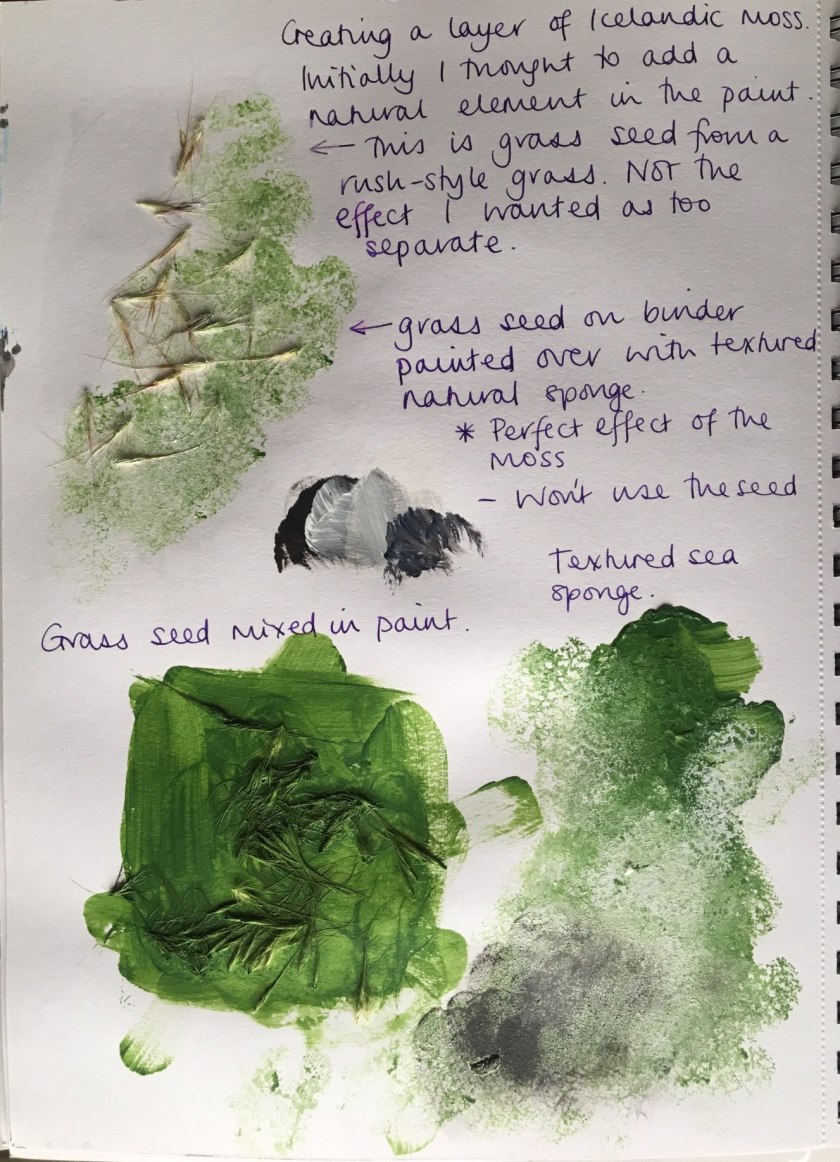 Creating a layer of Icelandic Moss.
Initially I thought to add a
natural element in the paint.
← This is grass seed from a
rush-style grass. Not the
effect I wanted as too
separate.
← grass seed on binder
painted over with textured
natural sponge.
* Perfect effect of the
moss
- Won't use the seed
Textured sea
sponge.
Grass seed mixed in paint.